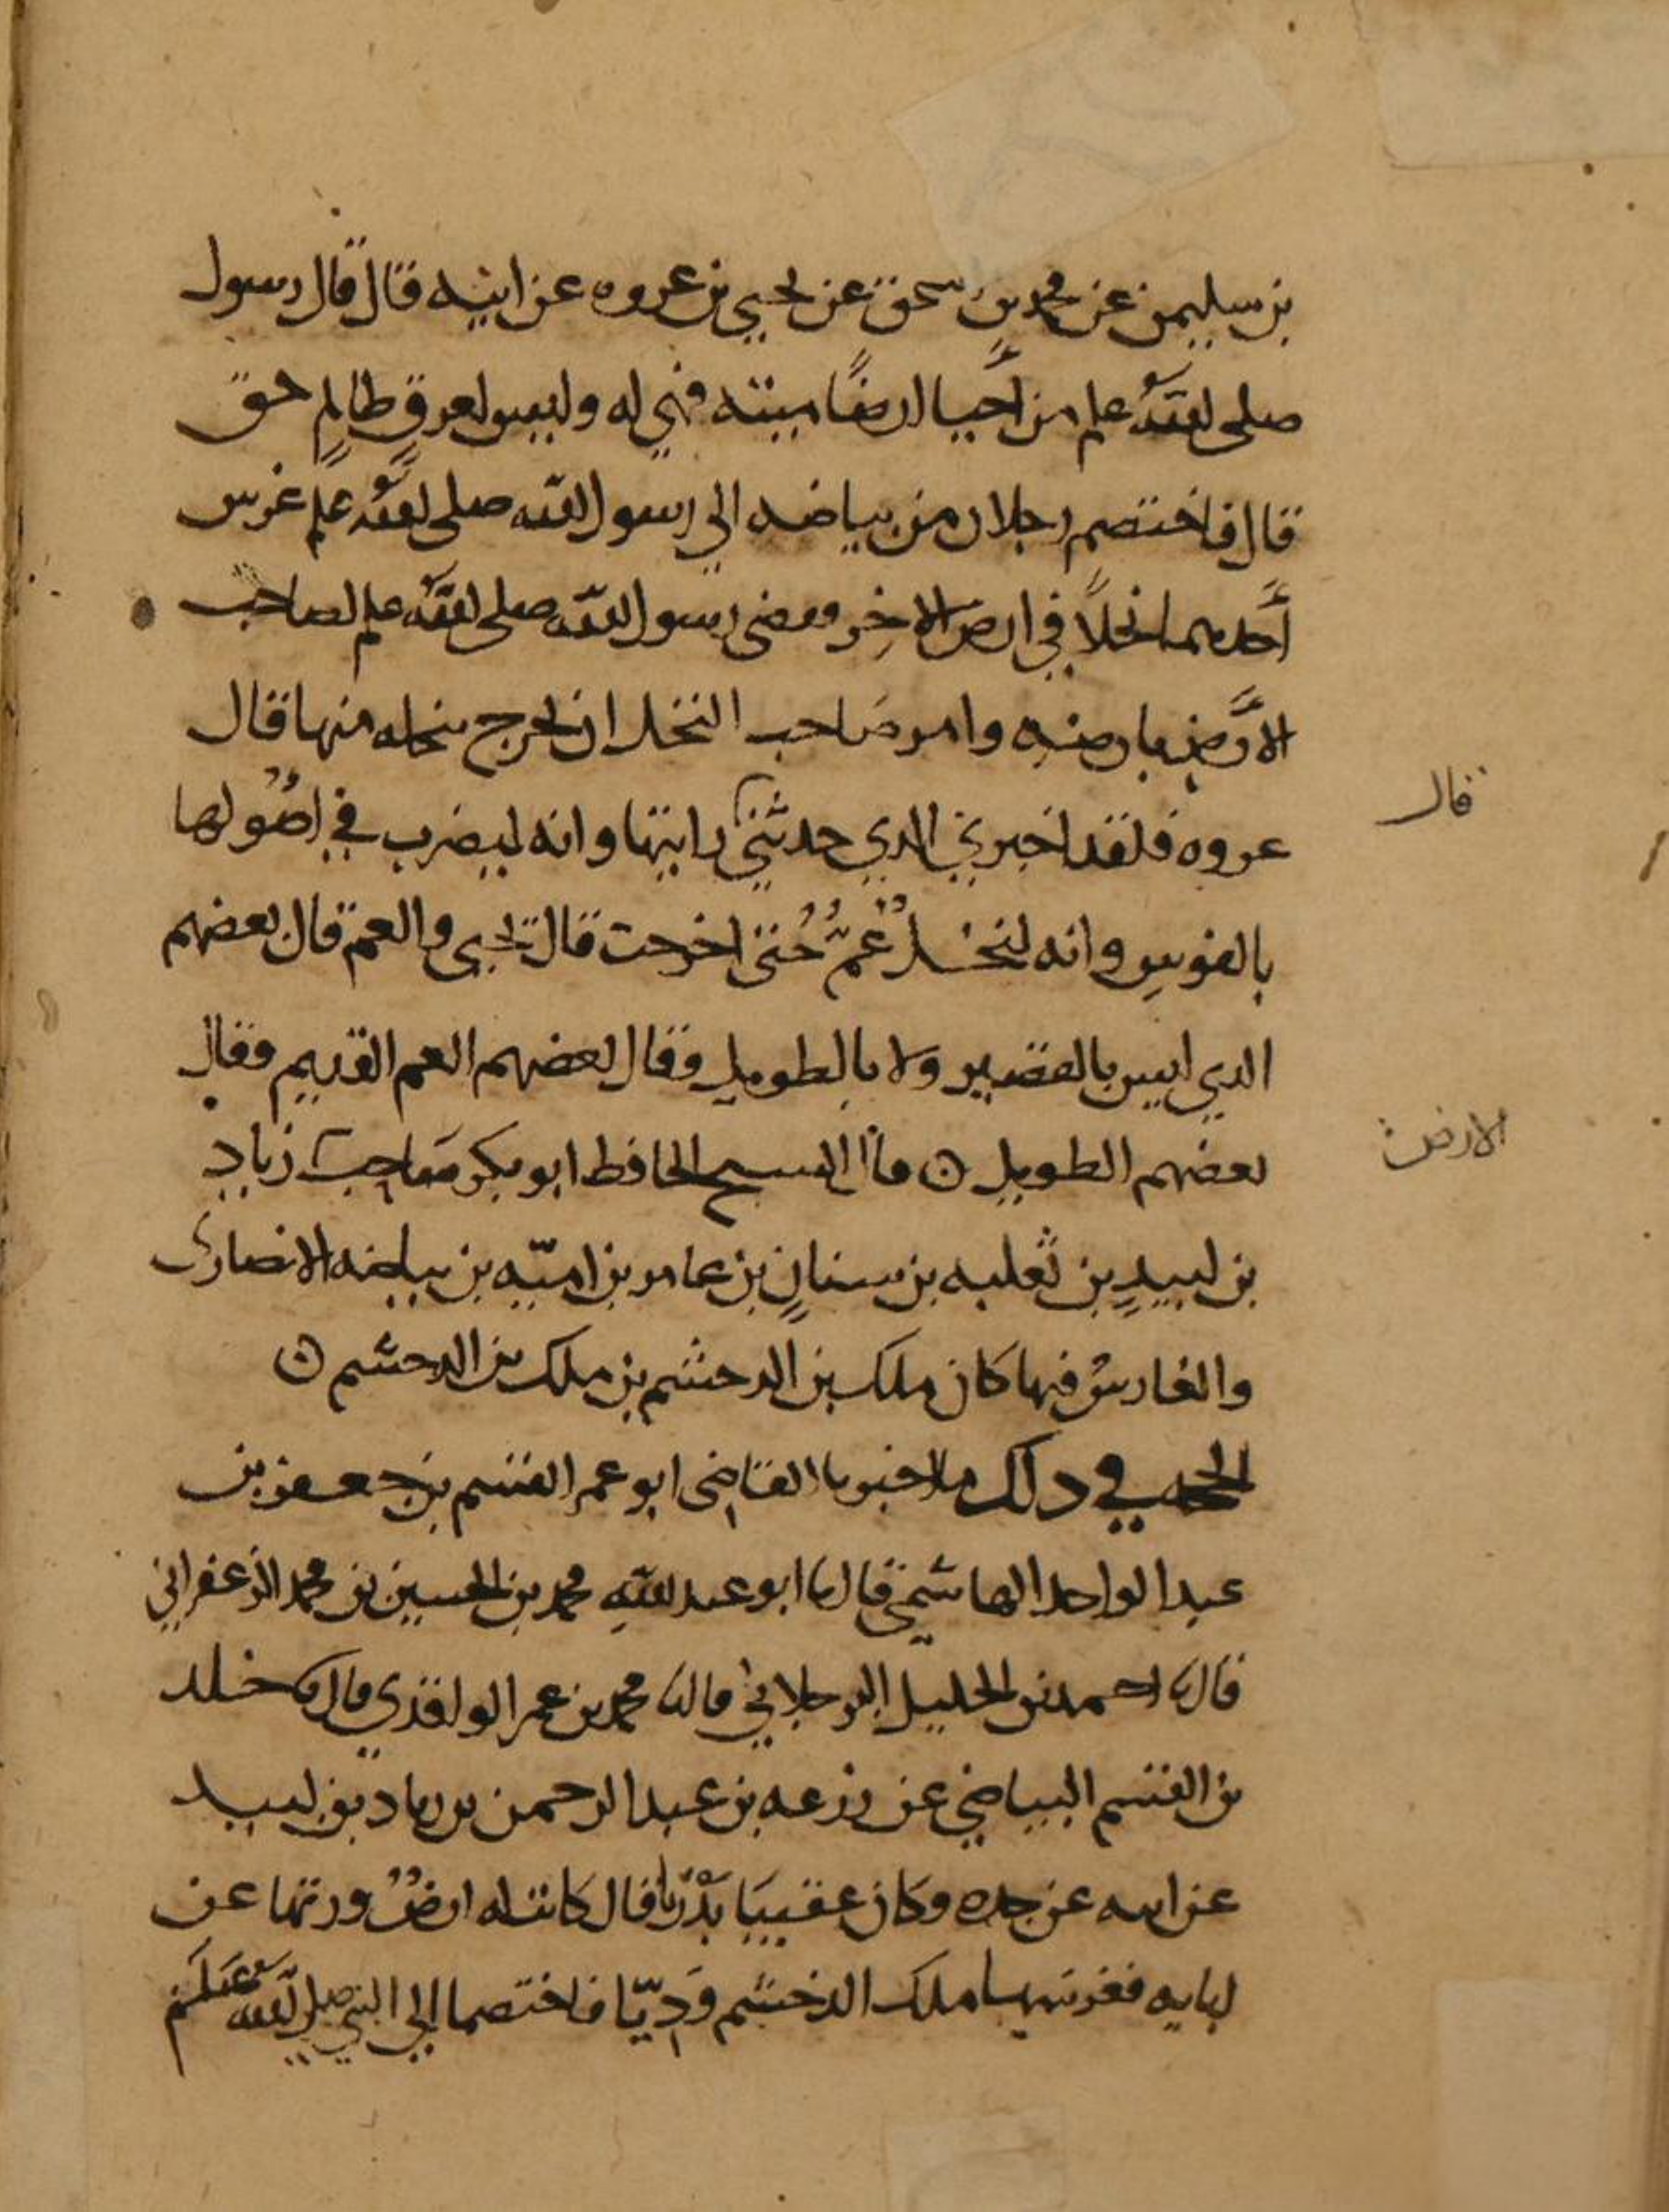 بن سليمن عن محمد بن اسحق عن يحيى بن عروه عن ابيه قال قال رسول
صلى الله علم من أحيا ارضًا ميته فهي له وليس لعرقٍ ظالمٍ حق
قال فاختصم رجلان من بياضه الي رسول الله صلى الله علم غرس
أحدهما نخلًا في ارض الاخر فقضى رسول الله صلى الله علم لصاحب
الأرض بارضه وامر صاحب النخل ان يخرج نخله منها قال
قال
عروه فلقد اخبرني الذي حدثني رايتها وانه ليضرب في اصُولها
بالفوس وانه لنخلٌ عُمٌّ حتى اخرجت قال يحيى والعم قال بعضهم
الذي ليس بالقصير ولا بالطويل وقال بعضهم العم القديم وقال
بعضهم الطويل ن قال الشيخ الحافظ ابو بكر صاحب زياد
الارض
بن لبيدٍ بن ثعلبه بن سنانٍ بن عامر بن اميّه بن بياضه الانصارى
والغارسُ فيها كان ملك بن الدخشم بن ملك بن الدخشم ن
الحجه في ذلك ما اخبرنا القاضى ابو عمر القسم بن جعفر بن
عبد الواحد الهاشمي قال نا ابو عبد الله محمد بن الحسين بن محمد الزعفراني
قال نا احمد بن الخليل البرجلاني قال نا محمد بن عمر الواقدي قال نا خلد
بن القسم البياضي عن زرعه بن عبد الرحمن بن زياد بن لبيد
عن ابيه عن جده وكان عقبيَا بَدْرّيا قال كانت له ارضٌ ورثها عن
ابايه فغرسها ملك الدخشم وَدِيّا فاختصما الي النبي صلى الله علم